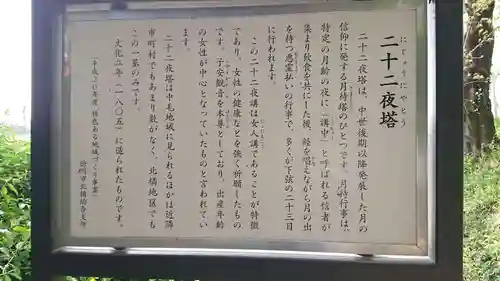 二十二夜塔
にじゅうにやとう
二十二夜塔は、中世後期以降発展した月の
信仰に発する月待塔のひとつです。月待行事は、
特定の月齢の夜に「講中」と呼ばれる信者が
集まり飲食を共にした後、経を唱えながら月の出
を待つ悪霊払いの行事で、多くが下弦の二十三日
に行われます。
この二十二夜講は女人講であることが特徴
であり、女性の健康などを強く祈願したもの
です。子安観音を本尊としており、出産年齢
の女性が中心となっていたものと言われてい
ます。
二十二夜塔は中毛地域に見られるほかは近隣
市町村でもあまり数がなく、北橘地区でも
この一基のみです。
文化二年（一八〇五）に造られたものです。
平成二十年度 特色ある地域づくり事業
渋川市北橘総合支所